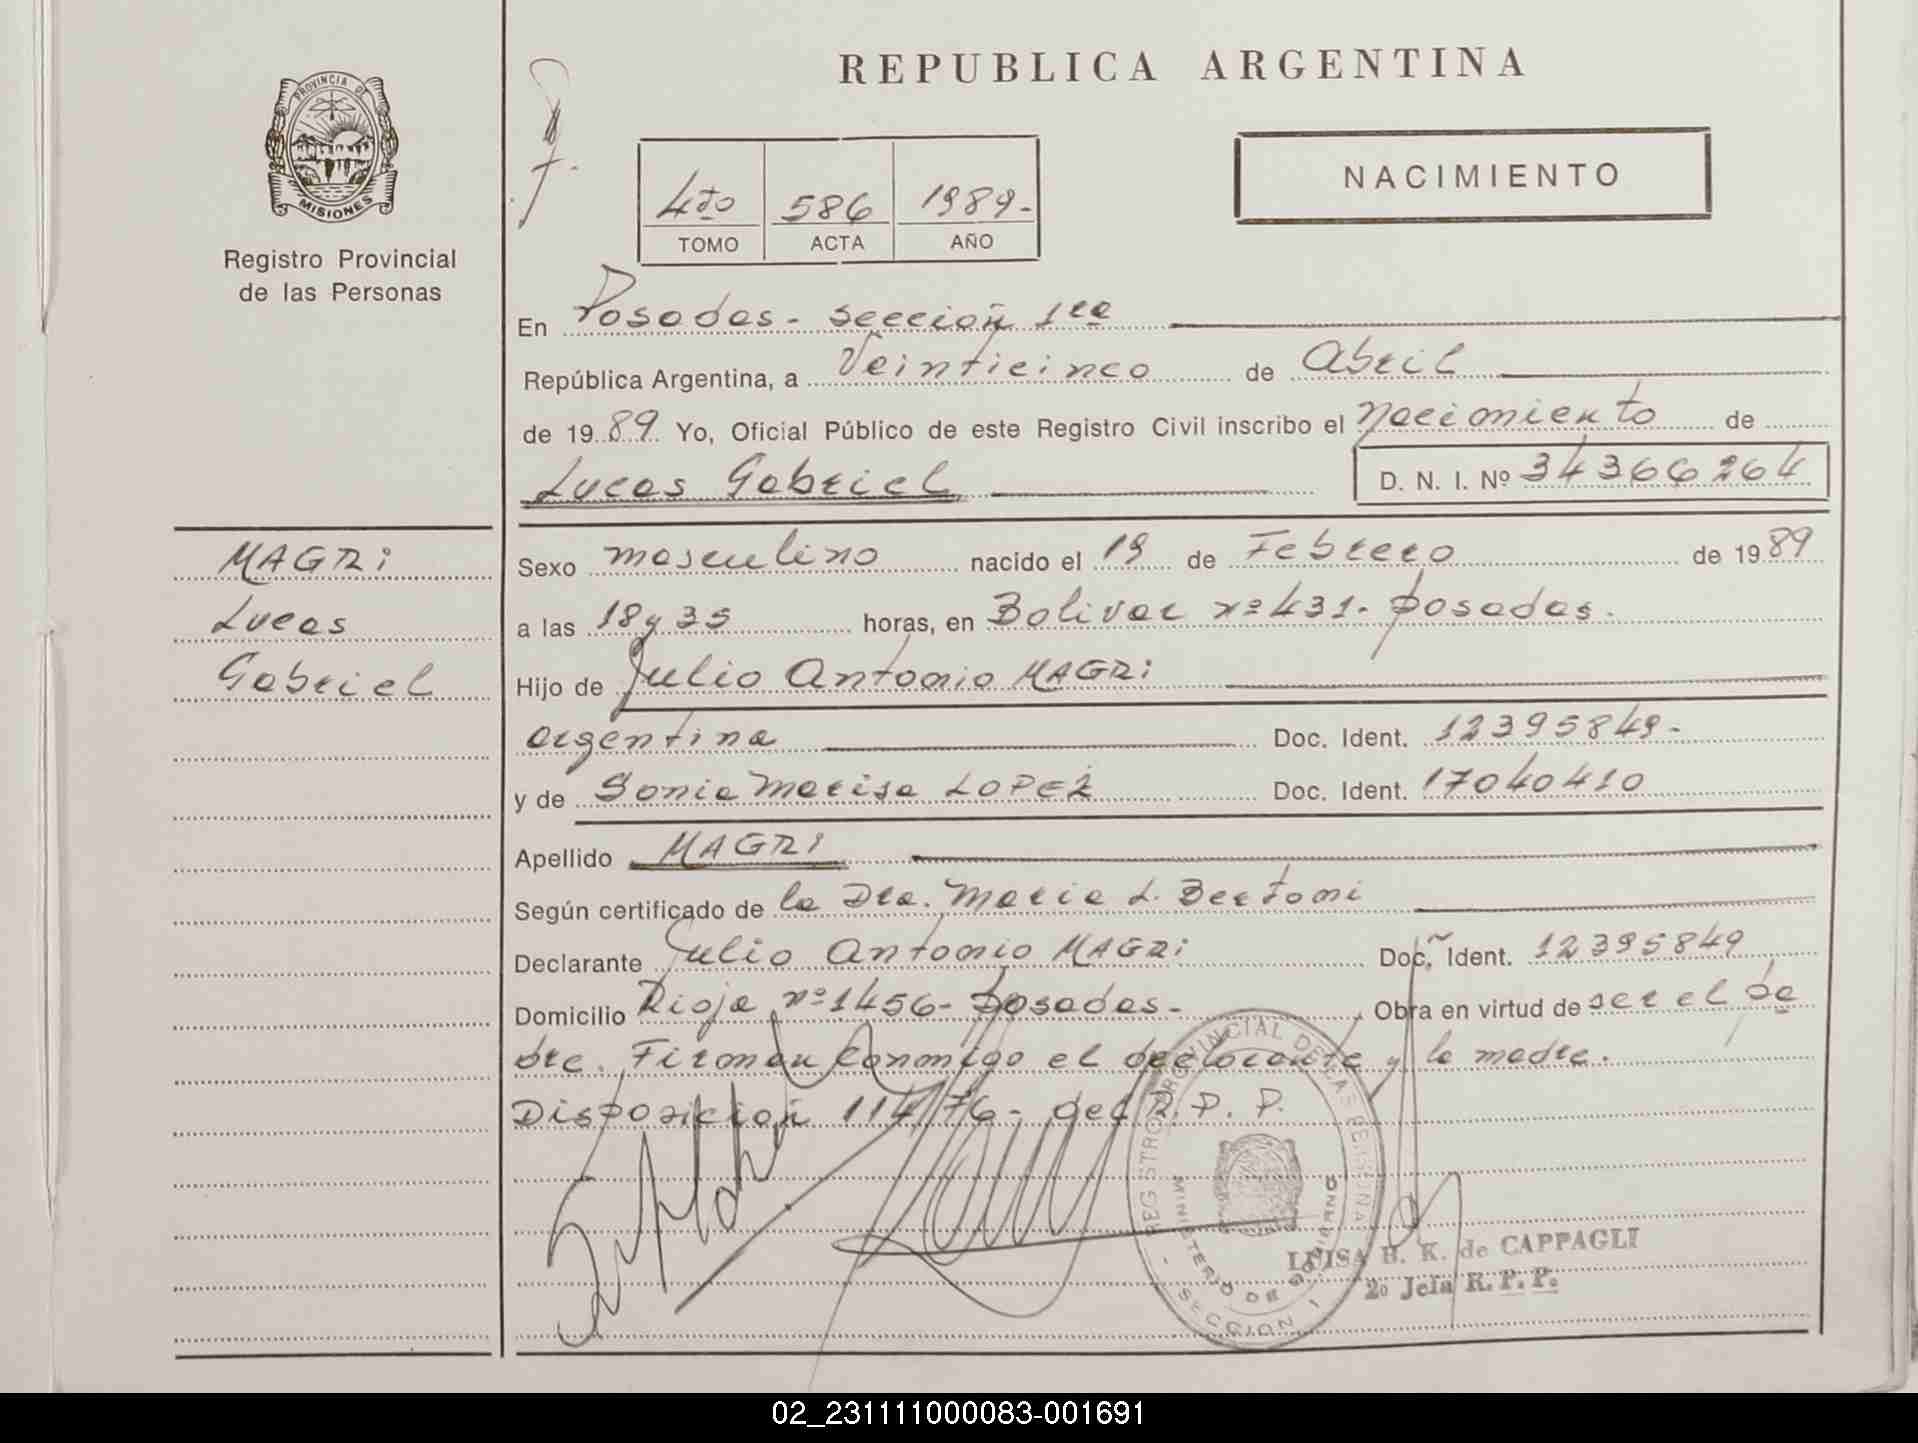 PROVINCIA DE
MISIONES
Registro Provincial
de las Personas
REPUBLICA ARGENTINA
4to 586 1989-
TOMO ACTA AÑO
NACIMIENTO
En Posadas - Sección 1ra
República Argentina, a Veinticinco de Abril
de 1989 Yo, Oficial Público de este Registro Civil inscribo el nacimiento de
Lucas Gabriel D. N. I. Nº 34366264
MAGRi
Lucas
Gabriel
Sexo masculino nacido el 19 de Febrero de 1989
a las 18 y 35 horas, en Bolivar nº 431- posadas.
Hijo de Julio Antonio MAGRi
argentina Doc. Ident. 12395849-
y de Sonia Marisa LOPEZ Doc. Ident. 17040410
Apellido MAGRI
Según certificado de la Dra. Maria L. Bertoni
Declarante Julio Antonio MAGRi Doc. Ident. 12395849
Domicilio Rioja nº 1456- posadas- Obra en virtud de ser el pa
dre. Firman conmigo el declarante y la madre.
Disposición 114/76- del R. P. P.
REGISTRO PROVINCIAL DE LAS PERSONAS
MINISTERIO DE GOBIERNO
- SECCION 1
LUISA H. K. de CAPPAGLI
2º Jefa R. P. P.
02_231111000083-001691